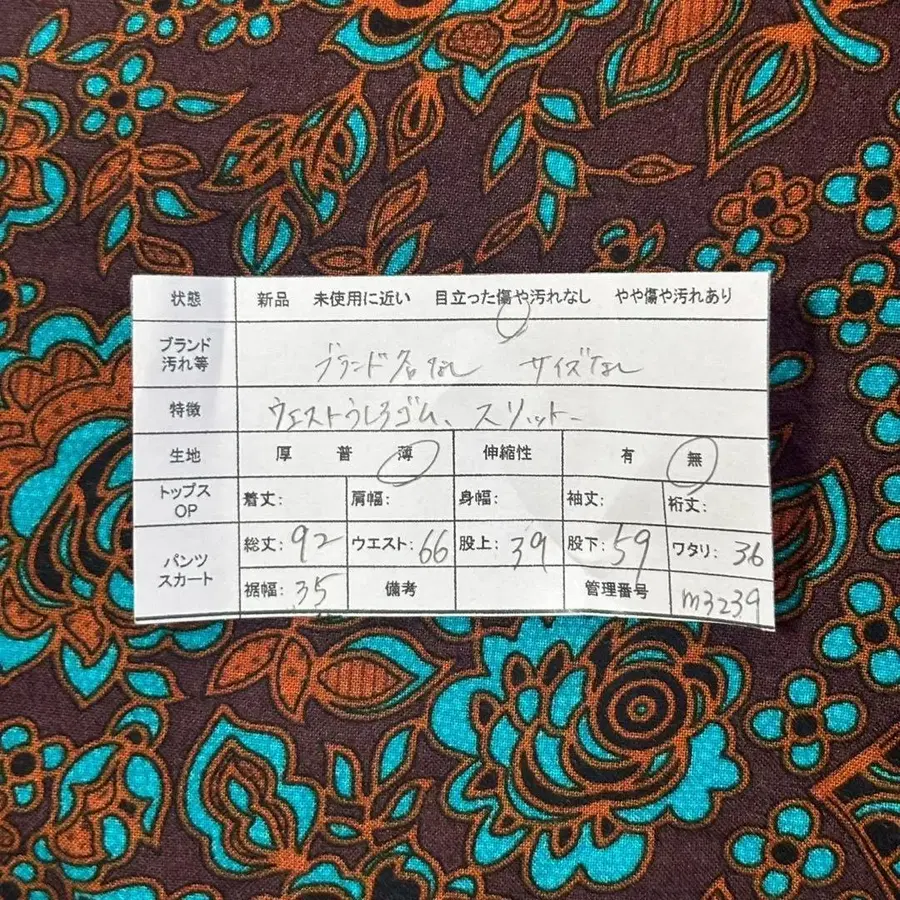 状態 新品 未使用に近い 目立った傷や汚れなし やや傷や汚れあり
ブランド
汚れ等
ブランド名なし サイズなし
特徴 ウエストうしろゴム、スリットー
生地 厚 普 薄 伸縮性 有 無
トップス
OP
着丈: 肩幅: 身幅: 袖丈: 裄丈:
パンツ
スカート
総丈: 92 ウエスト: 66 股上: 39 股下: 59 ワタリ: 36
裾幅: 35 備考 管理番号 m3239